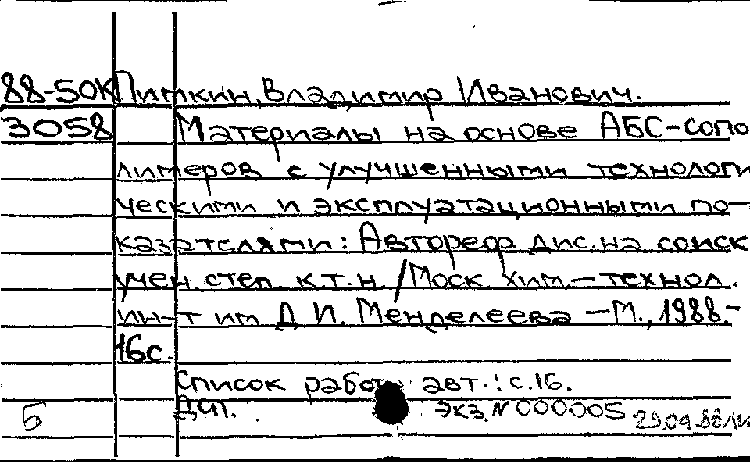 88-50К Питкин, Владимир Иванович.
3058 Материалы на основе АБС-сопо
лимеров с улучшенными технологи
ческими и эксплуатационными по-
казателями: Автореф дис. на соиск
учен. степ к.т.н / Моск хим.-технол.
ин-т им Д. И. Менделеева —М., 1988.-
16с.
Список работ авт.: с.16.
Б ДСП. экз. N 000005 29.09.88